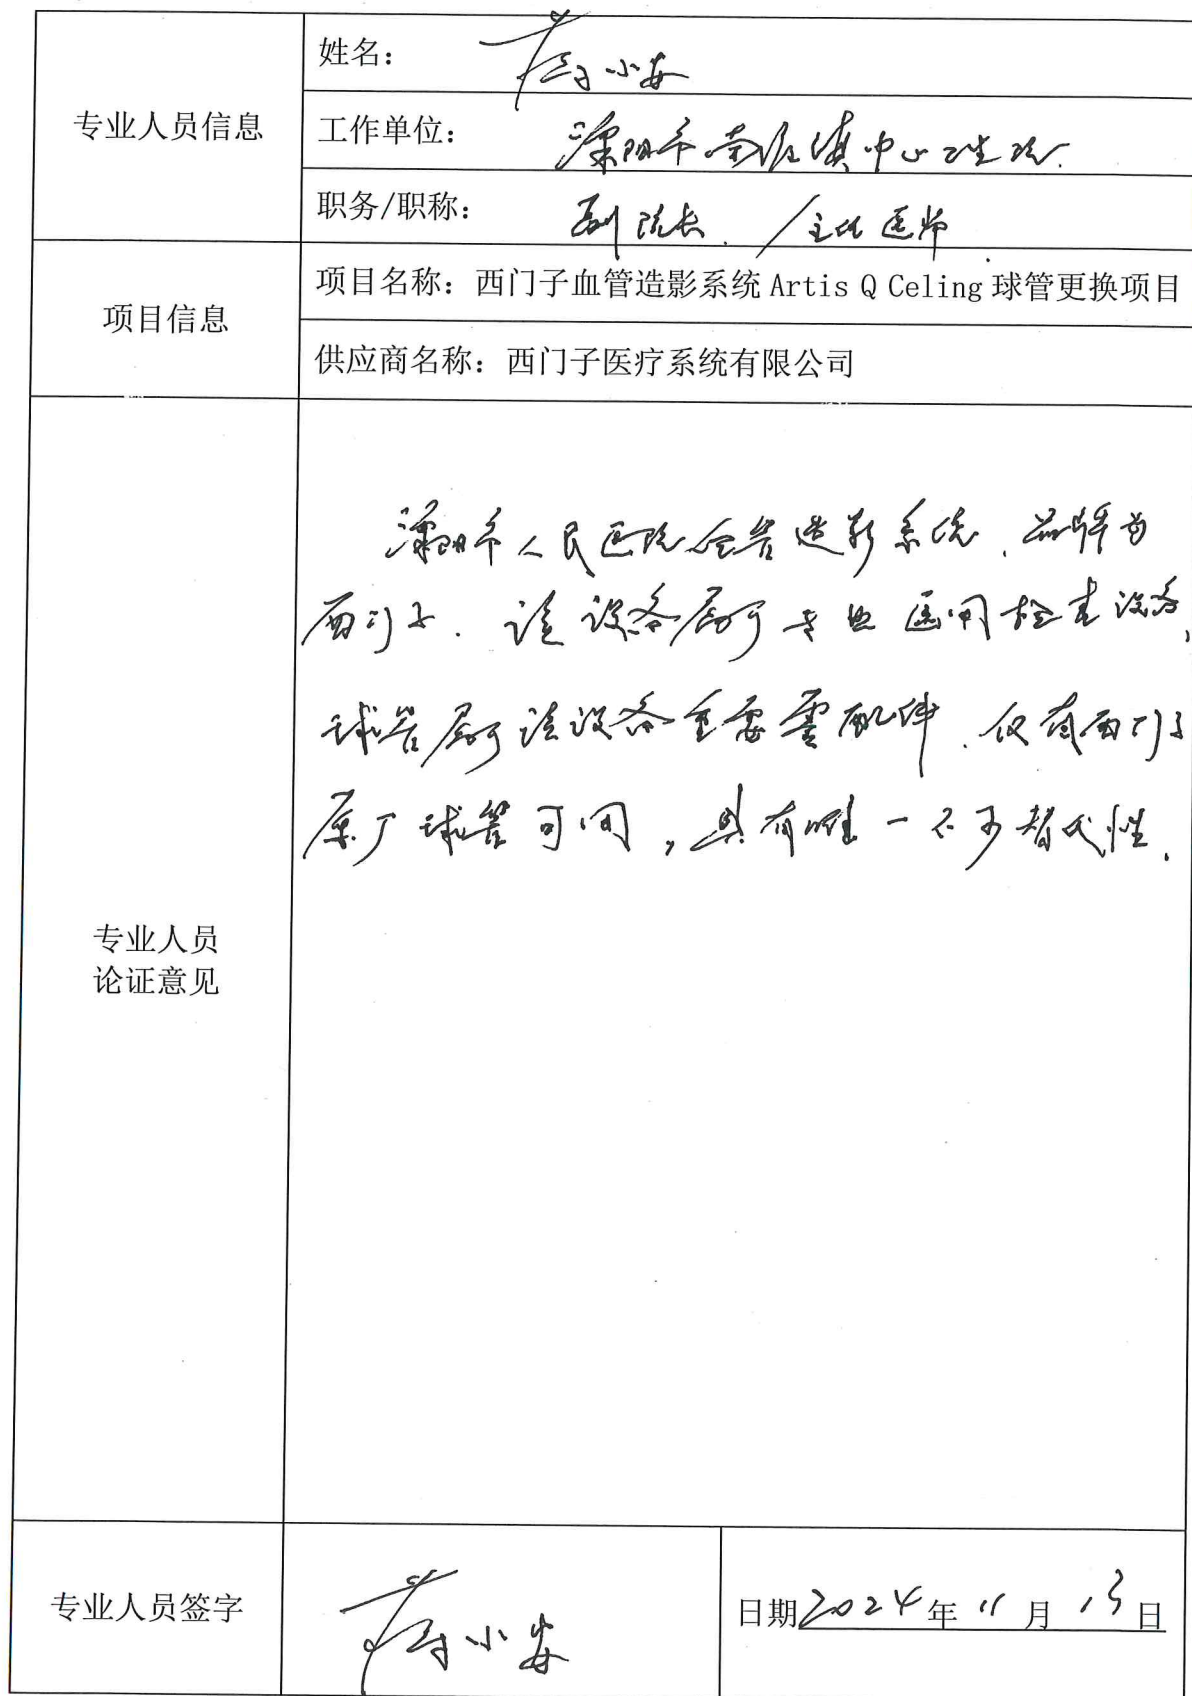 姓名： 小安
专业人员信息
工作单位： 溧阳市南渡镇中心卫生院.
职务/职称： 副院长./主任医师
项目信息
项目名称：西门子血管造影系统 Artis Q Celing 球管更换项目
供应商名称：西门子医疗系统有限公司
溧阳市人民医院血管造影系统、品牌为
西门子. 该设备属于专业医用检查设备,
球管属于该设备重要零配件. 仅有西门子
原厂球管可用, 具有唯一不可替代性.
专业人员
论证意见
专业人员签字
小安
日期2024年11月13日